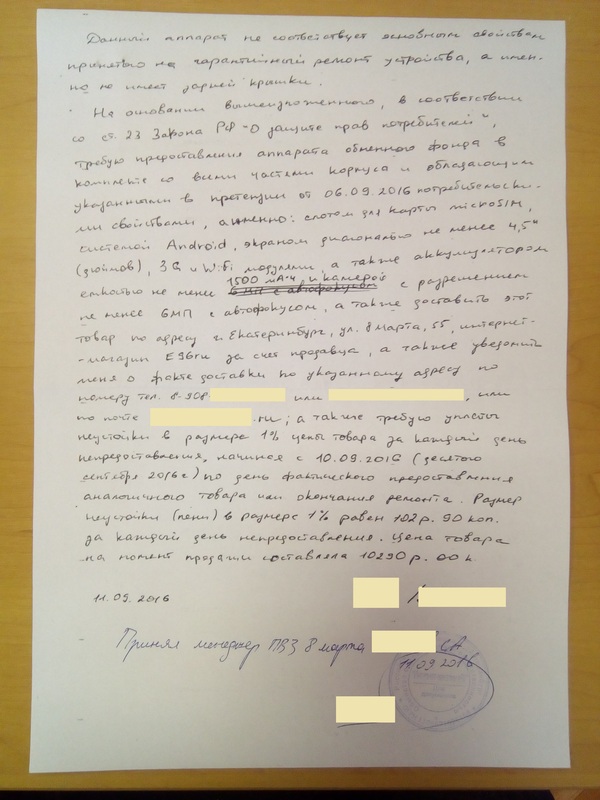 Данный аппарат не соответствует основным свойствам
принятого на гарантийный ремонт устройства, а имен-
но не имеет задней крышки.
На основании вышеизложенного, в соответствии
со ст. 23 Закона РФ "О защите прав потребителей",
требую предоставления аппарата обменного фонда в
комплекте со всеми частями корпуса и обладающим
указанными в претензии от 06.09.2016 потребительски-
ми свойствами, а именно: слотом для карты microSIM,
системой Android, экраном диагональю не менее 4,5"
(дюймов), 3G и Wi-Fi модулями, а также аккумулятором
емкостью не менее 1500 мА·ч, и камерой с разрешением
не менее 6МП с автофокусом, а также доставить этот
товар по адресу г. Екатеринбург, ул. 8 марта, 55, интернет-
-магазин E96.ru за счет продавца, а также уведомить
меня о факте доставки по указанному адресу по
номеру тел. 8-908- или , или
по почте .ru; а также требую уплаты
неустойки в размере 1% цены товара за каждый день
непредоставления, начиная с 10.09.2016 (десятого
сентября 2016 г) по день фактического предоставления
аналогичного товара или окончания ремонта. Размер
неустойки (пени) в размере 1% равен 102 р. 90 коп.
за каждый день непредоставления. Цена товара
на момент продажи составляла 10290 р. 00 к.
11.09.2016
Принял менеджер ПВЗ 8 марта
11.09.2016